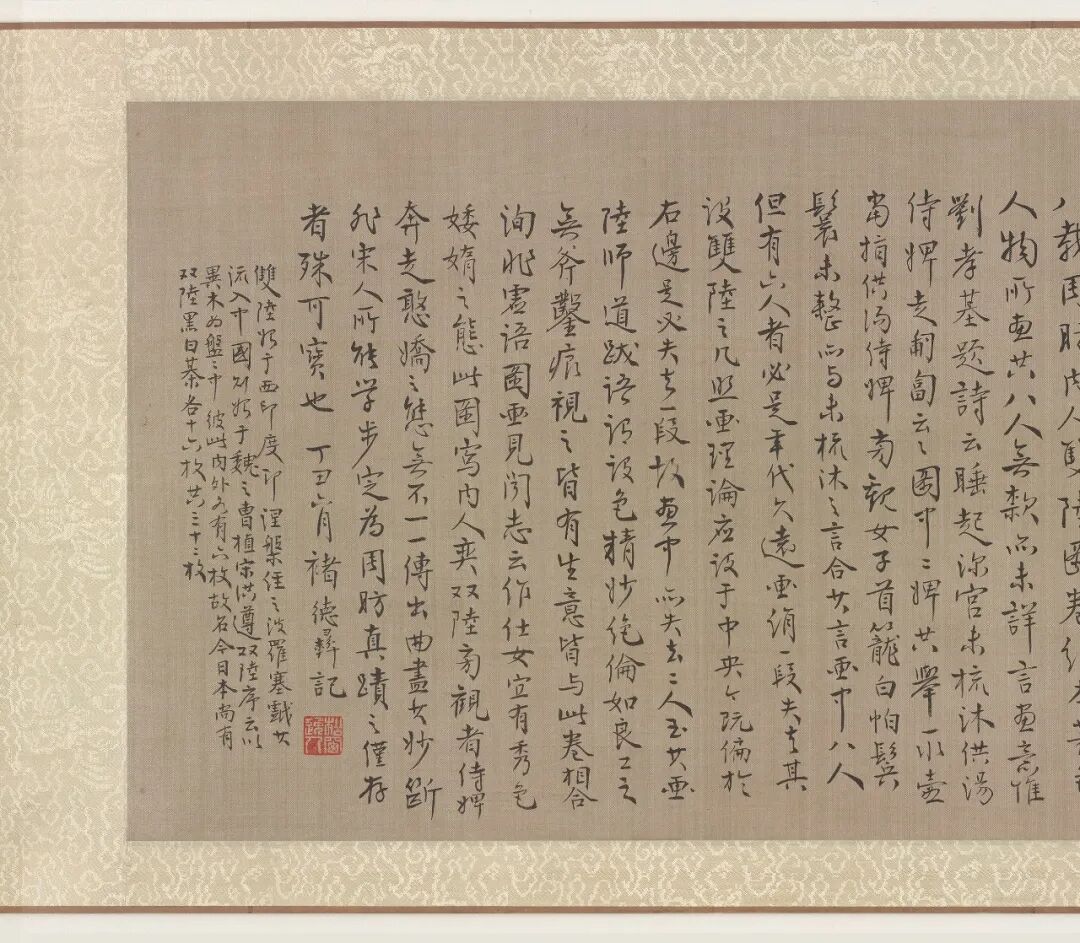 人物所画共八人無款而未詳言画意惟
劉孝基題詩云睡起深宮未梳沐供湯
侍婢走匍匐云云圖中二婢共舉一水壺
當指供湯侍婢旁觀女子首籠白帕鬢
鬟未整而与未梳沐之言合其言画中八人
但有六人者必是年代久遠画絹一段失去其
設雙陸之几照画理論应設于中央今既偏於
右邊是必失去一段故画中所失去二人玉其画
陸師道跋語謂設色精妙絕倫如良工之
無斧鑿痕視之皆有生意皆与此卷相合
洵非虛語圖画見聞志云作仕女宜有秀色
婑媠之態此圖寫內人奕双陸旁觀者侍婢
奔走憨嬌之態無不一一傳出曲盡其妙斷
非宋人所能学步定為周昉真蹟之僅存
者殊可寶也 丁丑六月 褚德彝記
雙陸始于西印度即涅槃經之波羅塞戲其
流入中國則始于魏之曹植宋洪遵双陸序云以
異木為盤盤中彼此內外各有六枚故名今日本尚有
双陸黑白棊各十六枚共三十二枚